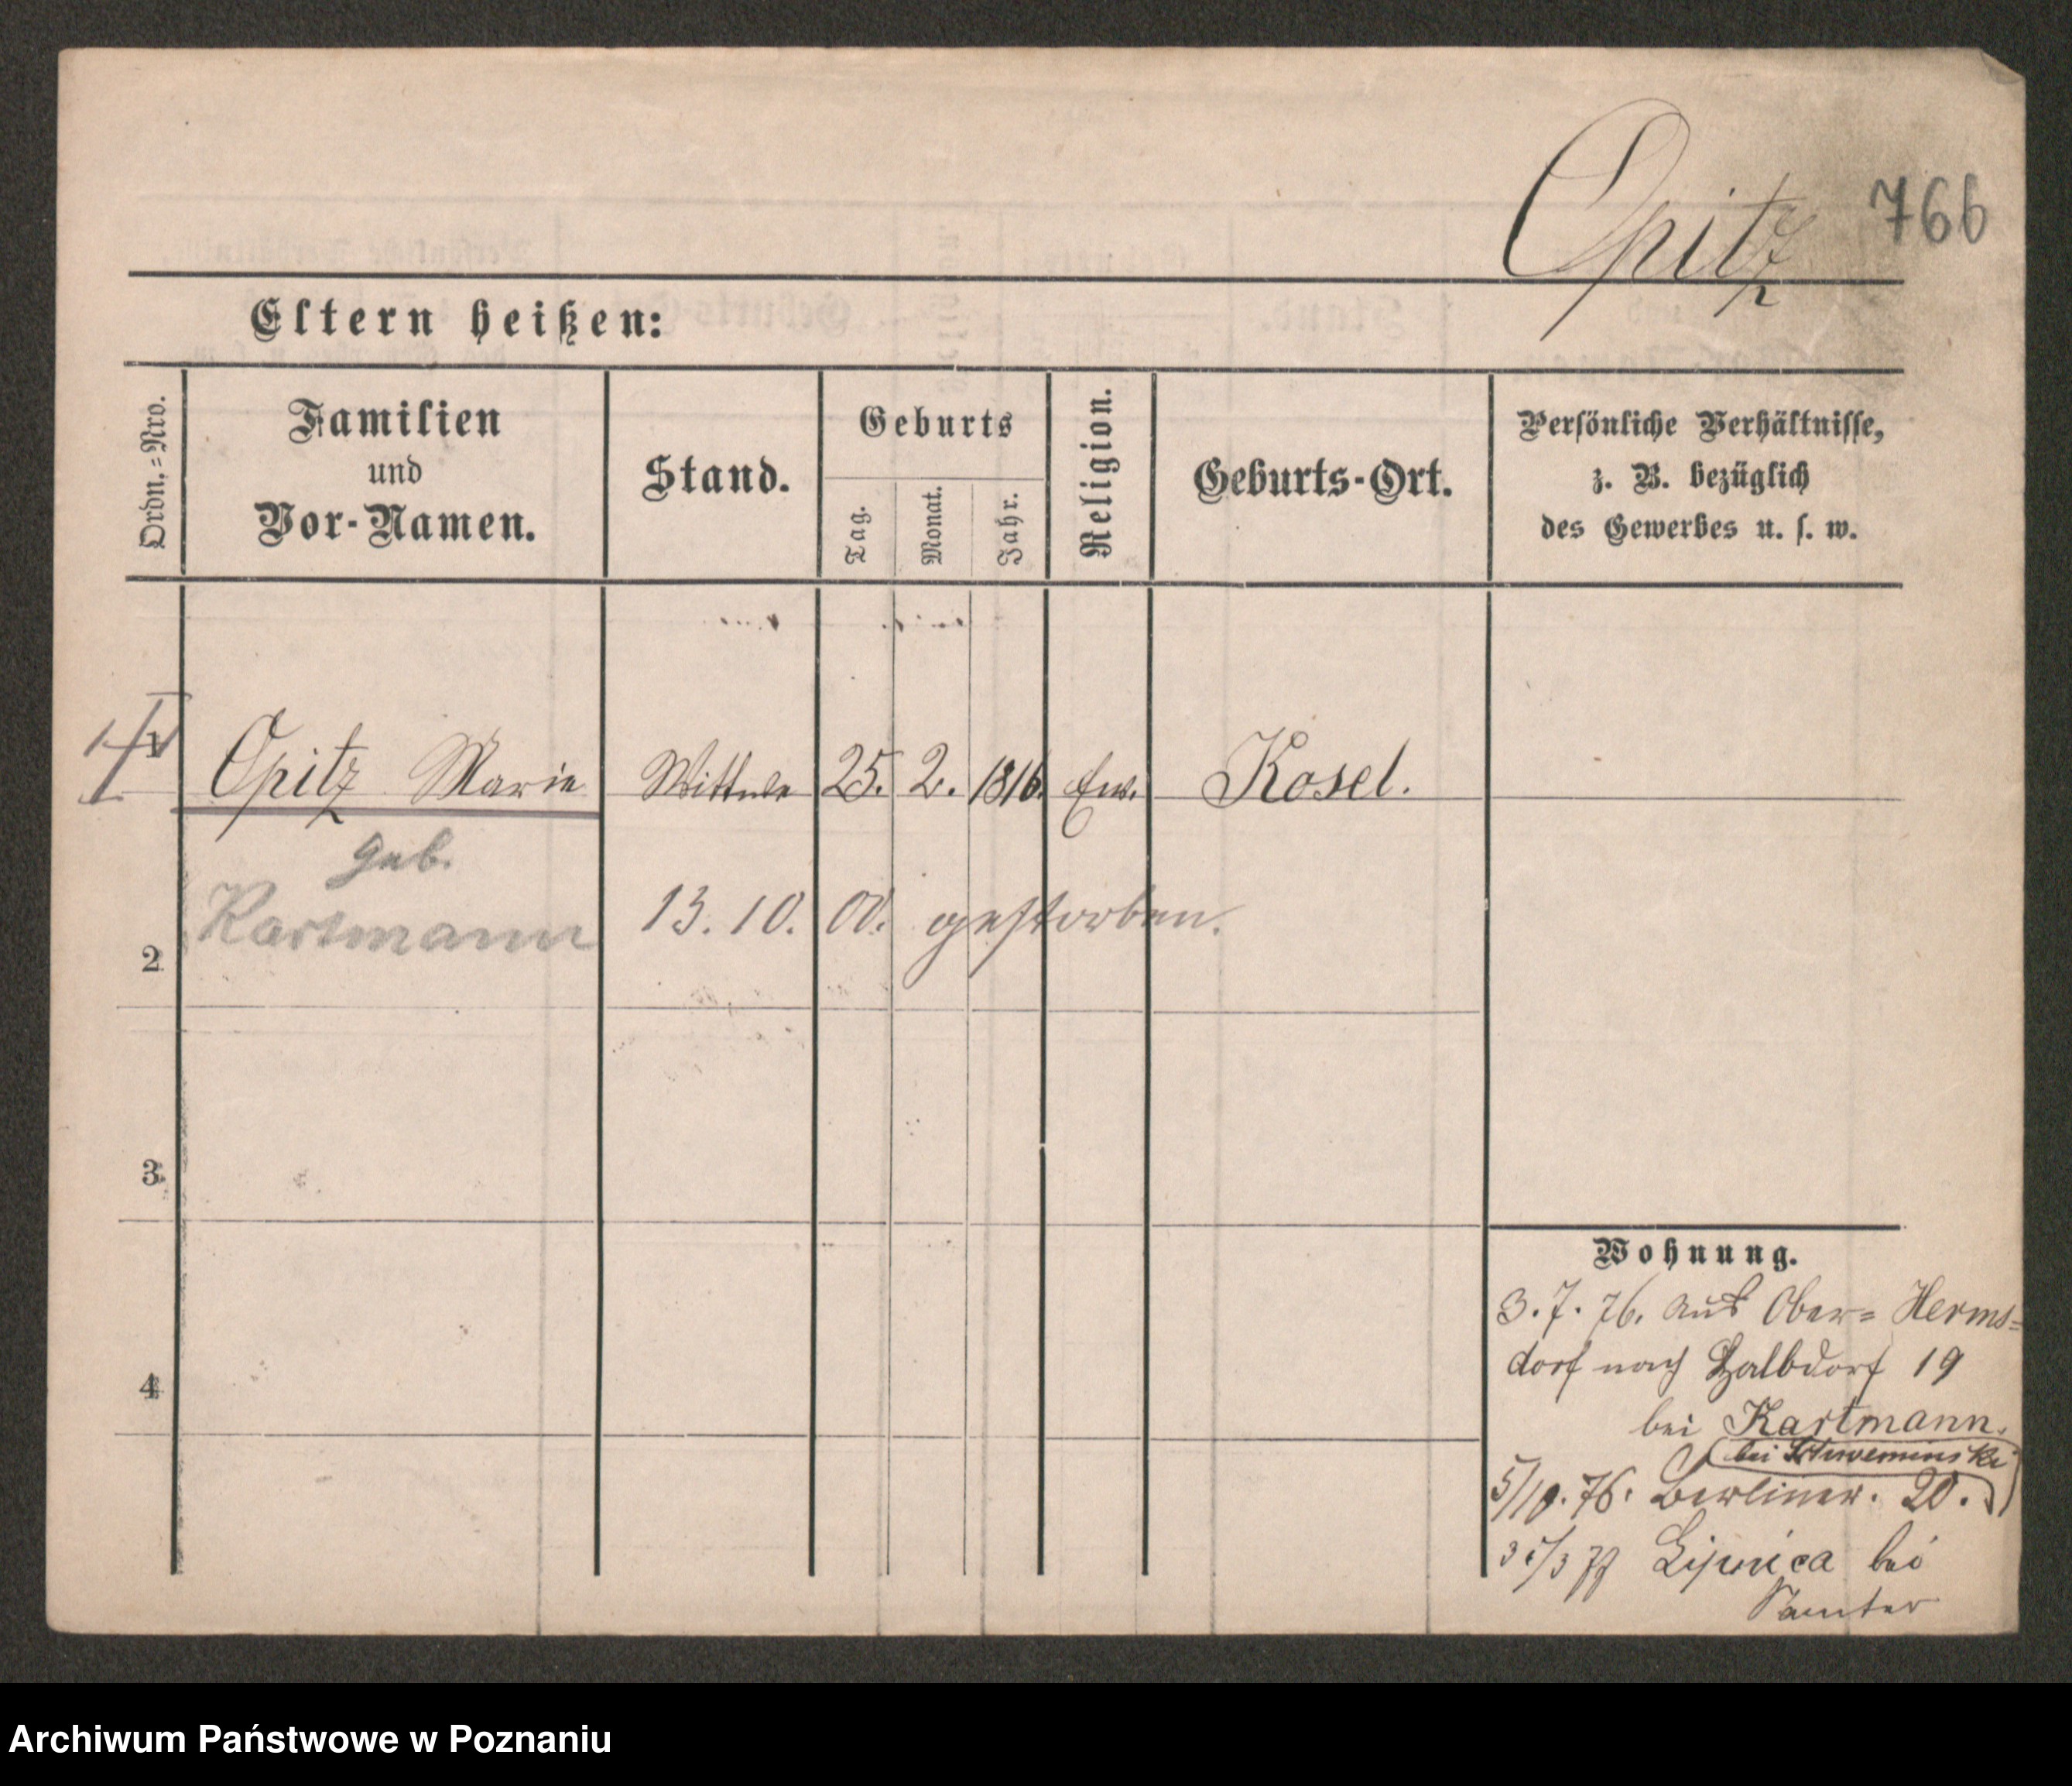 Opitz 766
Eltern heißen:
Ordn.=Nro.
Familien
und
Vor-Namen.
Stand.
Geburts
Tag.
Monat.
Jahr.
Religion.
Geburts-Ort.
Persönliche Verhältnisse,
z. B. bezüglich
des Gewerbes u. s. w.
1 Opitz Marie Wittwe 25. 2. 1816. Ew. Kosel.
geb.
Kartmann 13. 10. 00. gestorben.
2
3
4
Wohnung.
3. 7. 76. aus Ober= Herms=
dorf nach Halbdorf 19
bei Kartmann.
bei
5/10. 76. Berliner. 20.
Lipnica bei
Samter
Archiwum Państwowe w Poznaniu